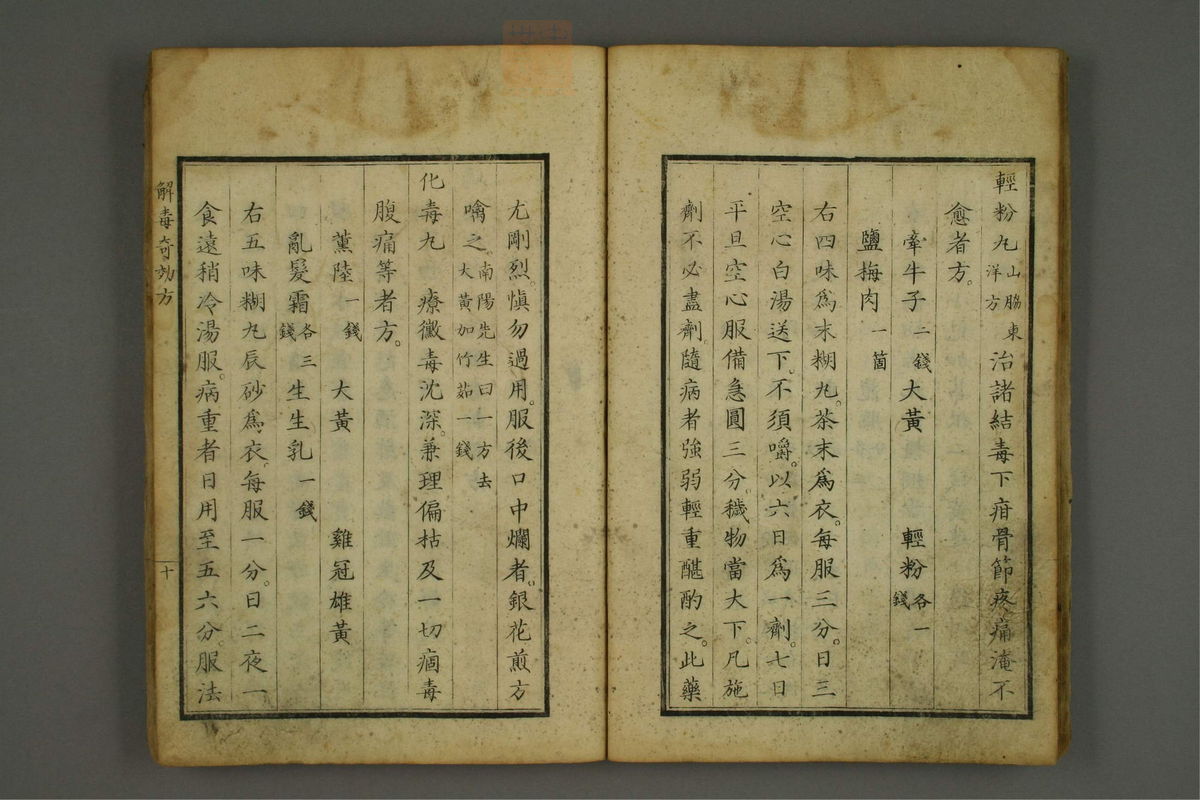 輕粉丸山脇東洋方治諸結毒下疳骨節疼痛淹不
愈者方。
牽牛子二錢大黃輕粉各一錢
鹽梅肉一箇
右四味爲末糊丸。茶末爲衣。每服三分。日三
空心白湯送下。不須嚼。以六日爲一劑。七日
平旦空心服備急圓三分。穢物當大下。凡施
劑不必盡劑。隨病者強弱輕重酙酌之。此藥
尤剛烈。愼勿過用。服後口中爛者。銀花煎方
噙之。南陽先生曰一方去大黃加竹茹一錢
化毒丸療黴毒沈深。兼理偏枯及一切痼毒
腹痛等者方。
薰陸一錢大黃雞冠雄黃
亂髮霜各三錢生生乳一錢
右五味糊丸辰砂爲衣。每服一分。日二夜一
食遠稍冷湯服。病重者日用至五六分。服法
解毒奇効方
十